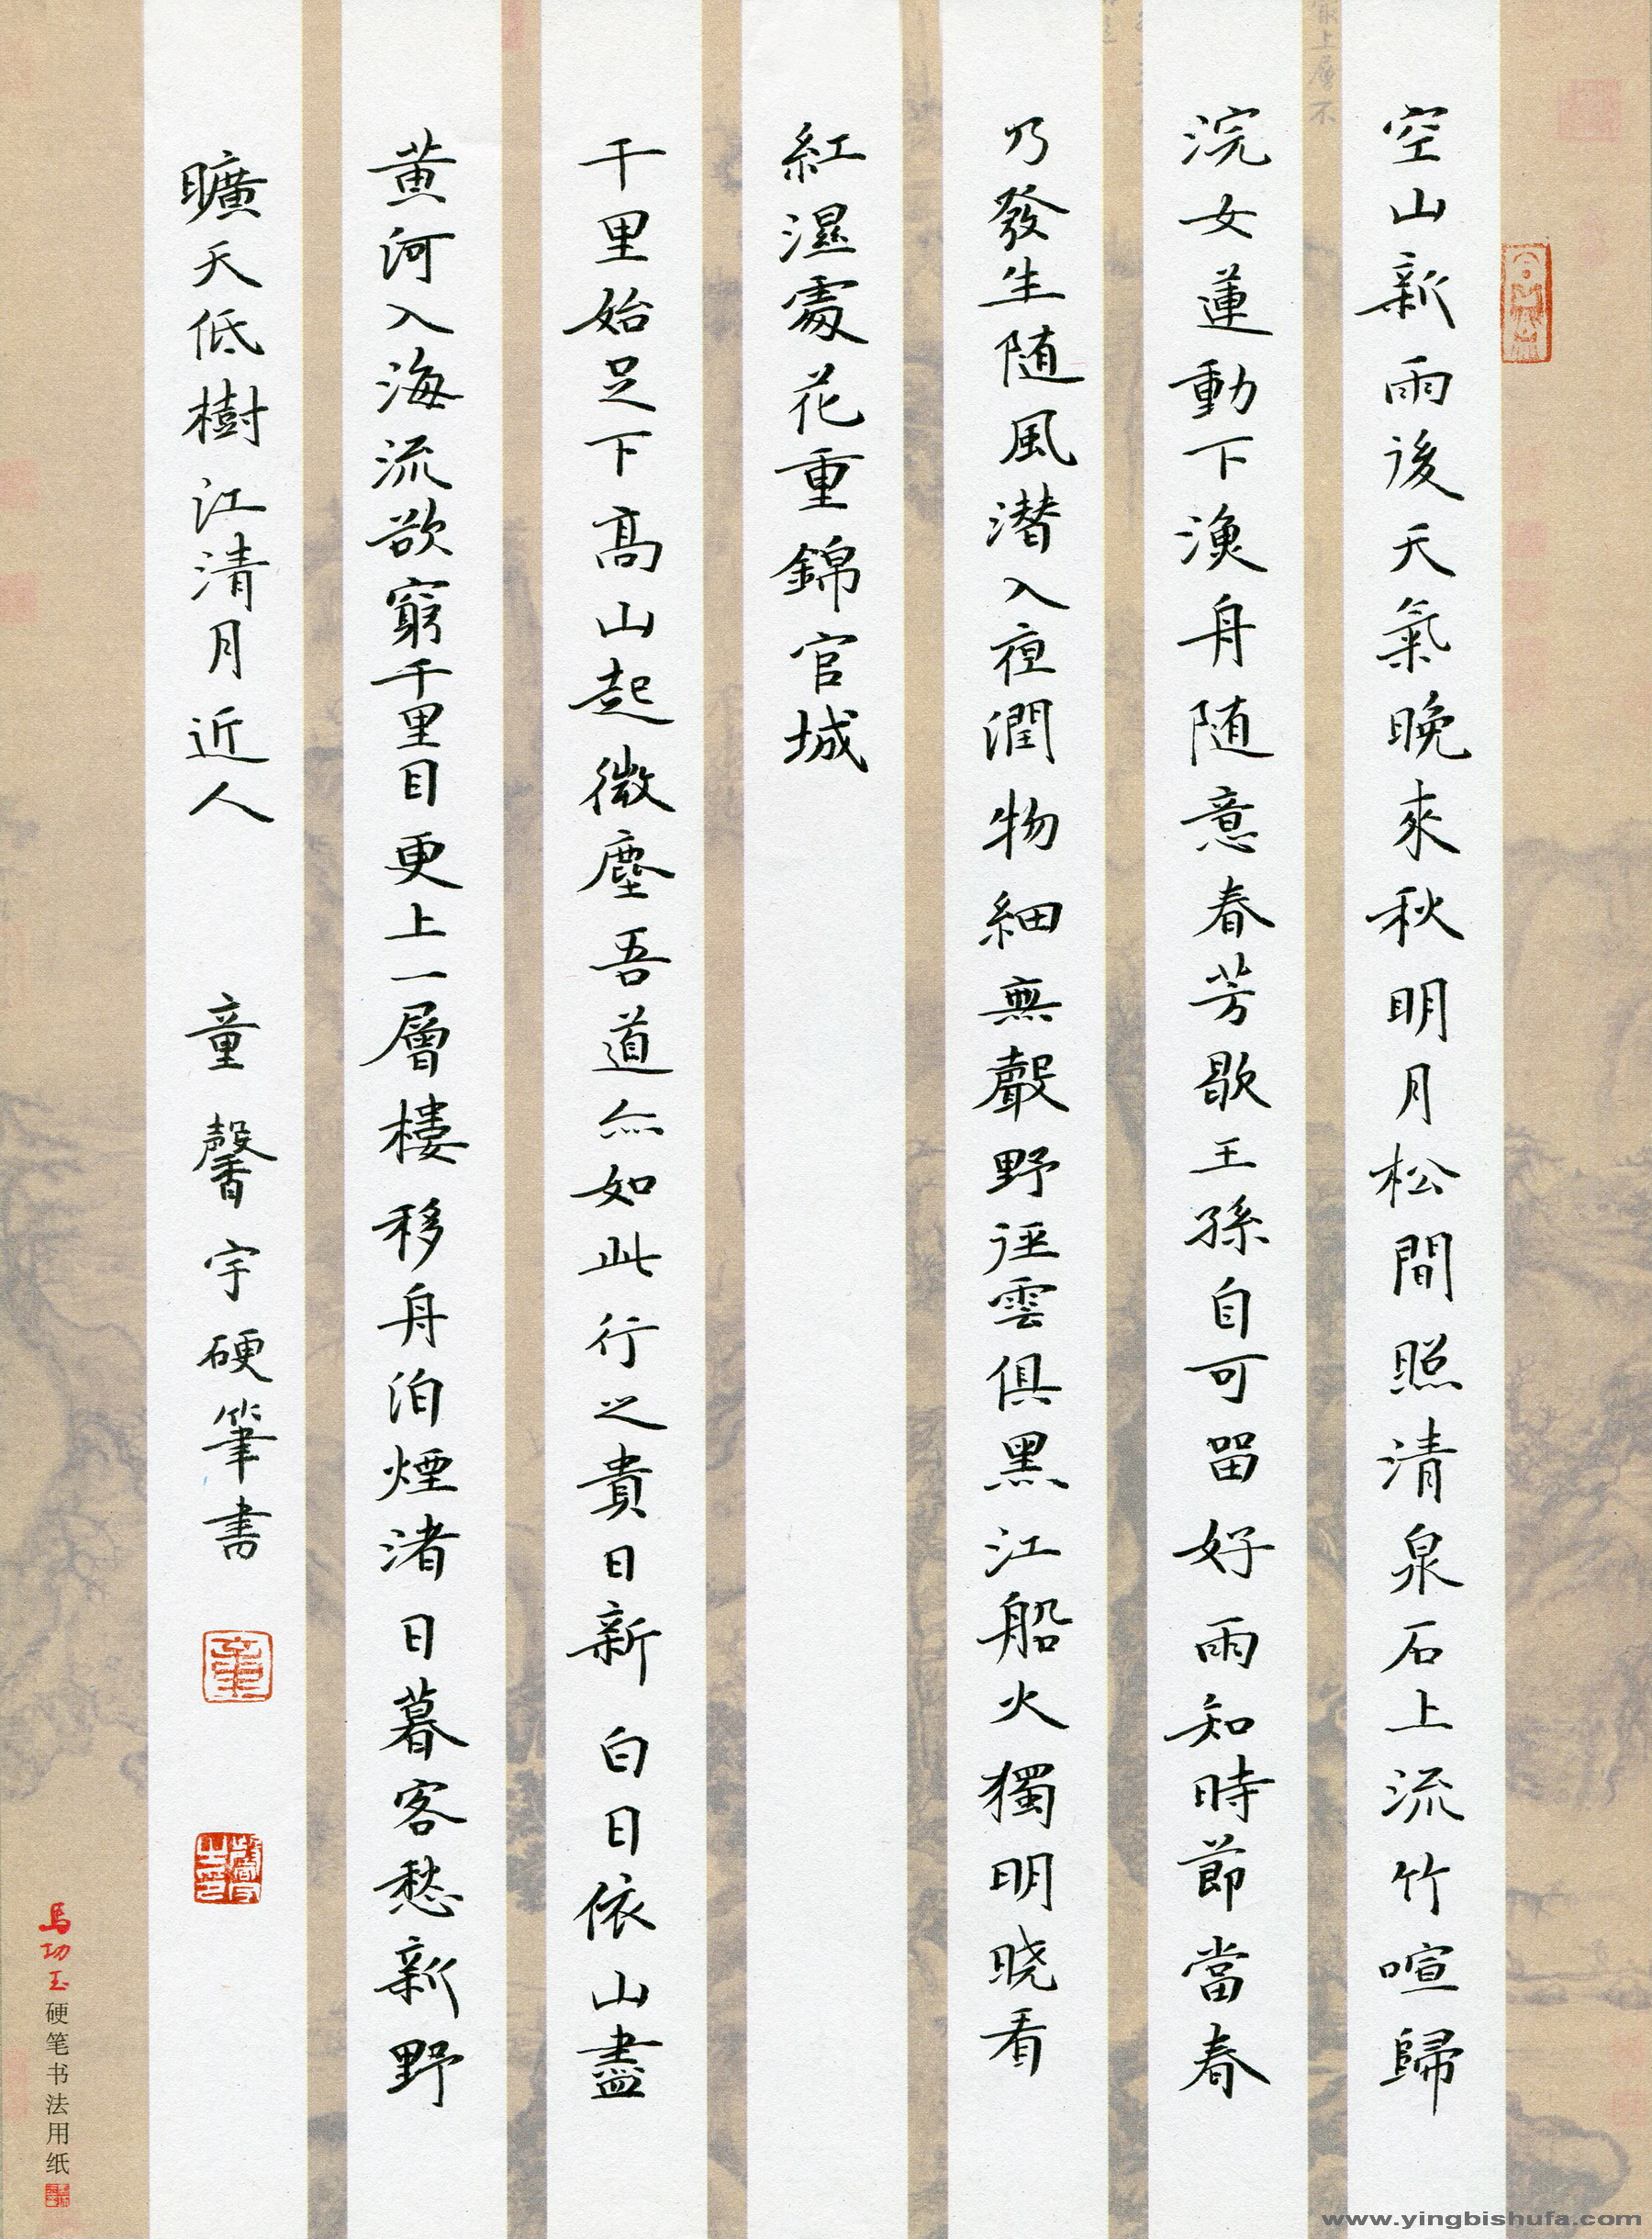 空山新雨後天氣晚來秋明月松間照清泉石上流竹喧歸
浣女蓮動下漁舟随意春芳歇王孫自可留好雨知時節當春
乃發生随風潛入夜潤物細無聲野徑雲俱黑江船火獨明曉看
紅濕處花重錦官城
千里始足下高山起微塵吾道亦如此行之貴日新 白日依山盡
黄河入海流欲窮千里目更上一層樓移舟泊煙渚日暮客愁新野
曠天低樹江清月近人 童馨宇硬筆書
童
馬功玉硬笔书法用纸
www.yingbishufa.com